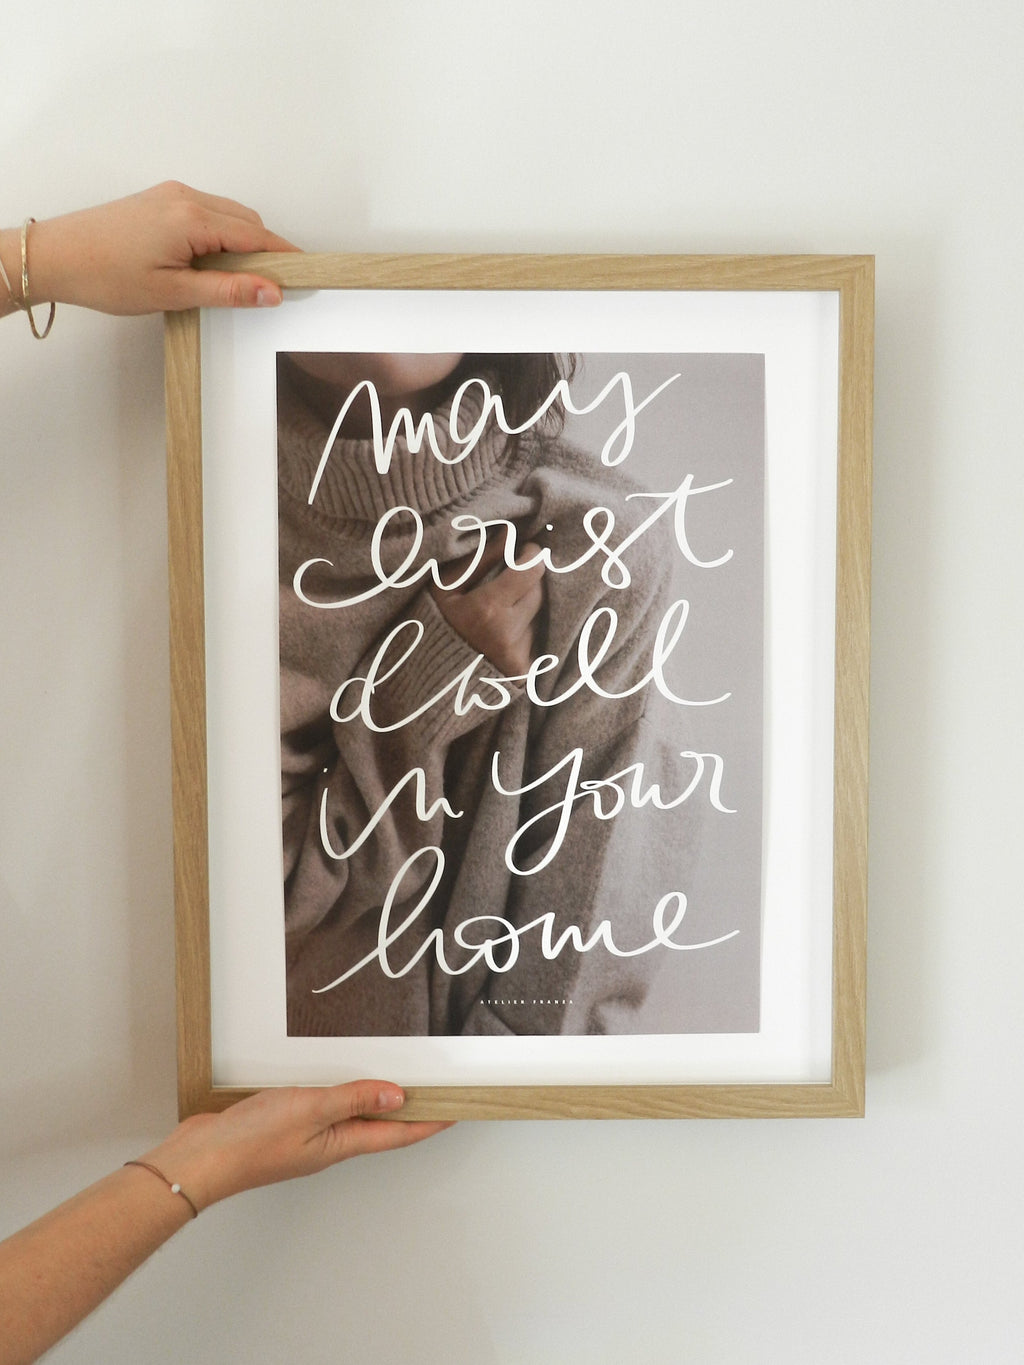 may
christ
dwell
in your
home
ATELIER FRANEA